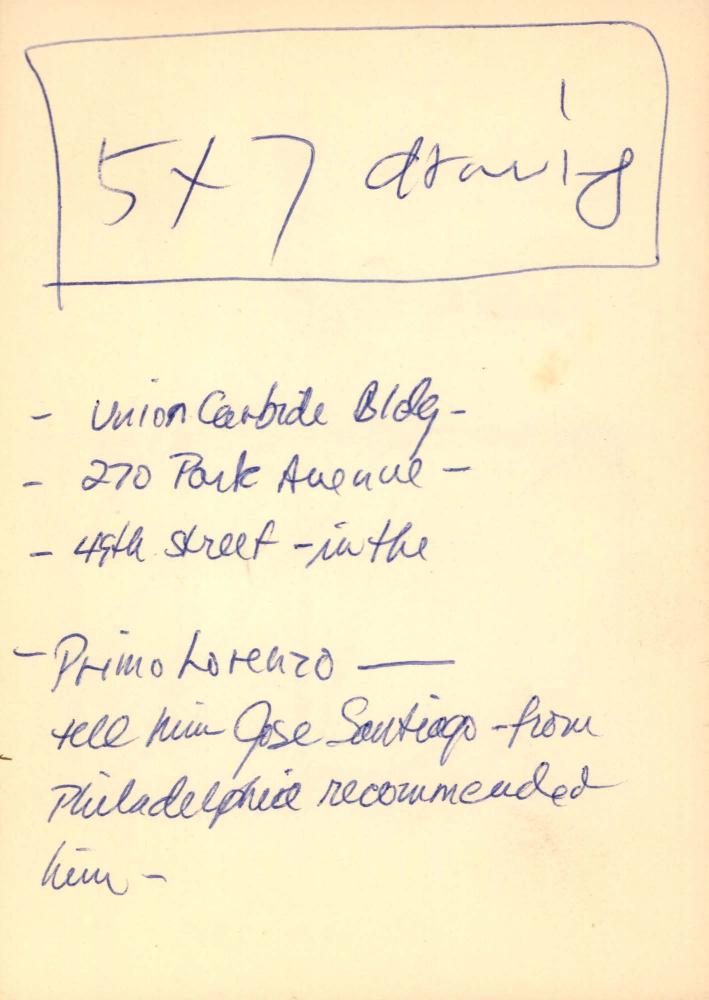 5x7 drawing
- Union Carbide Bldg -
- 270 Park Avenue -
- 49th street - in the
- Primo Lorenzo —
tell him Jose Santiago - from
Philadelphia recommended
him -